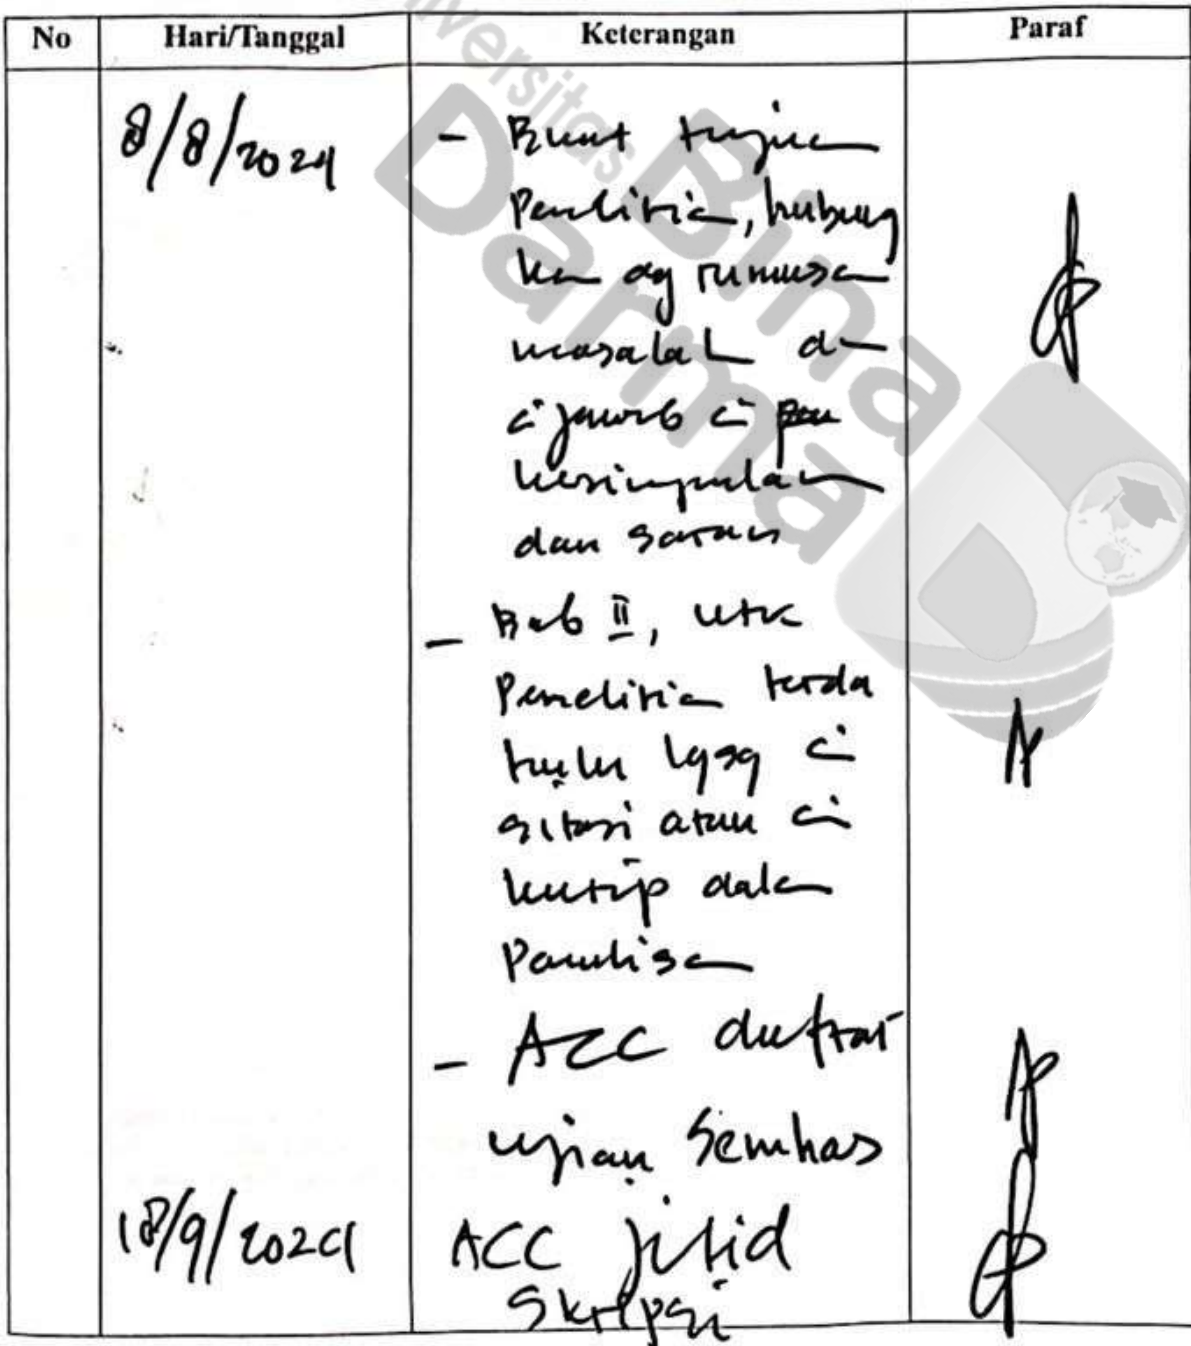 No Hari/Tanggal Keterangan Paraf
Universitas
Bina
Darma
8/8/2024 - Buat tujuan
Penelitian, hubung
kan dg rumusan
masalah dan
dijawab di
kesimpulan
dan saran
- Bab II, utk
Penelitian terda
hulu di
sitasi atau di
kutip dalam
Penulisan
- ACC daftar
ujian Semhas
18/9/2024 ACC jilid
Skripsi